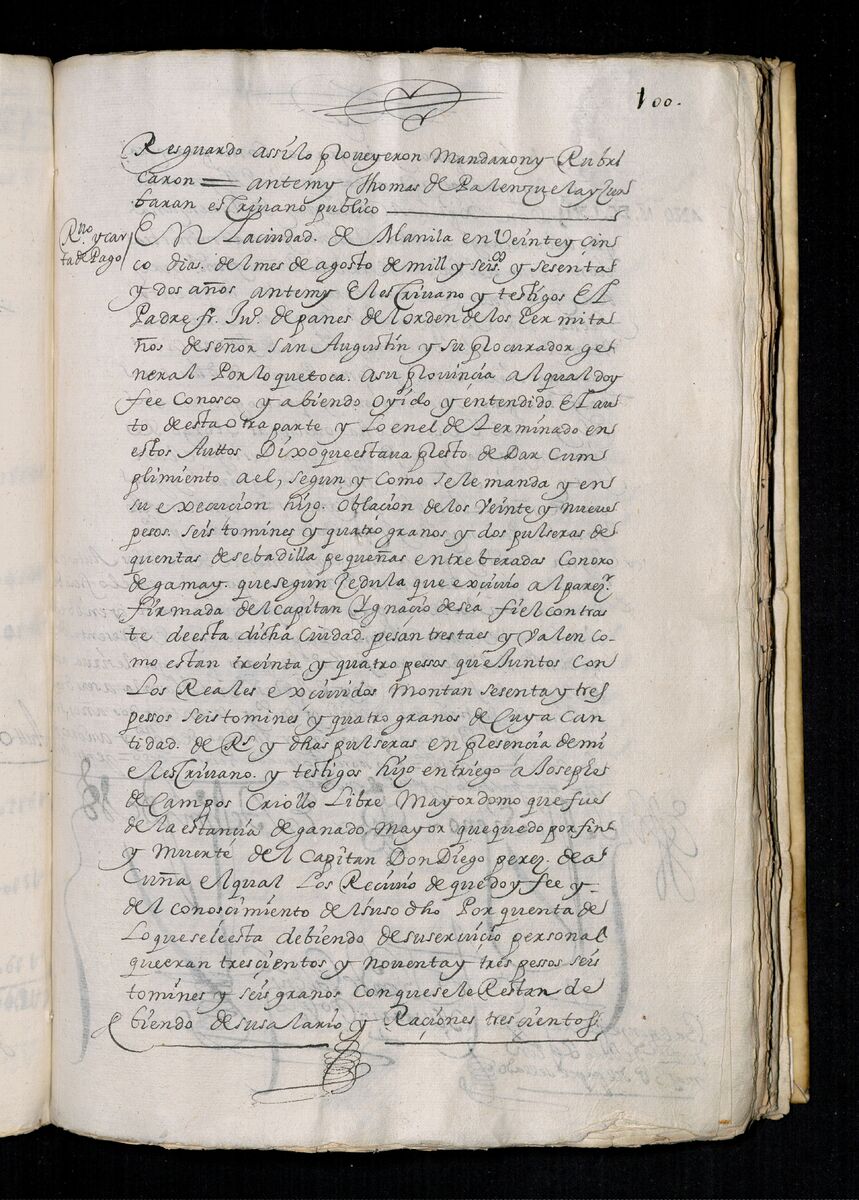 100.
Resguardo assilo proveyeron Mandaron y Rubri
caron = antemy Thomas de Palenzuela y Zur
baran escriuano publico
Rno y car
ta de Pago
EN La ciudad. de Manila en Veinte y cin
co dias. del mes de agosto de mill y seisos y sesenta
y dos años antemy El escriuano y testigos El
Padre fr. Juo. de panes del orden de los hermita
ños de señor san Augustin y su procurador ge
neral Por lo que toca. a su prouincia al qual doy
fee Conosco y abiendo oyido y entendido El au
to de esta otra parte y lo en el determinado en
estos Auttos Dixo que estaua presto de Dar Cum
plimiento a el, segun y como se le manda y en
su execucion hizo. oblacion de los Veinte y nueue
pesos. seis tomines y quatro granos y dos pulseras de
quentas de sebadilla pequeñas entreberadas Con oro
de gamay. que segun Zedula que exciuio al parezr.
firmada del capitan Ygnacio de sea fiel contras
te de esta dicha ciudad pesan tres taes y Valen co-
mo estan treinta y quatro pessos que Juntos con
Los Reales exciuidos Montan sesenta y tres
pessos seis tomines y quatro granos de Cuya can
tidad. de Rs y dhas pulseras en presencia de mi
el escriuano. y testigos hizo entriego a Josephe
de Campos Criollo Libre Mayordomo que fue
de la estancia de ganado Mayor que quedo por fin
y Muerte del Capitan Don Diego perez. de a
Cuña el qual Los Reciuio de que doy fee y-
del conoscimiento del suso dho Por quenta de
Lo que se le esta debiendo de su seruicio personal
que eran trescientos y nouenta y tres pessos seis
tomines y seis granos con que se le Restan de
biendo de su salario y Raçiones trescientos